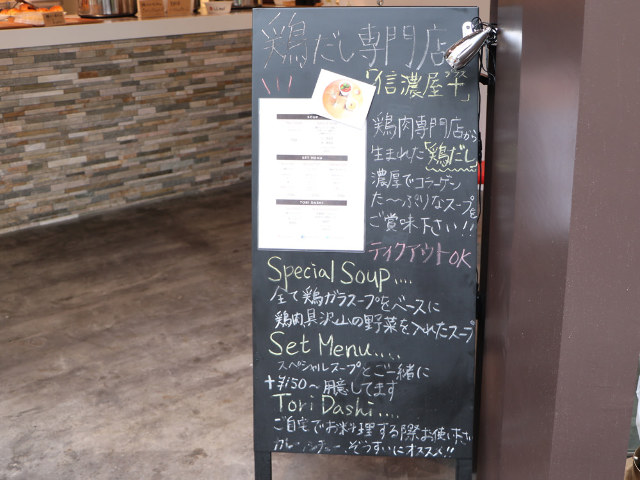 鶏だし専門店
「信濃屋+」
プラス
鶏肉専門店から
生まれた「鶏だし」
濃厚でコラーゲン
た〜っぷりなスープを
ご賞味下さい!!
テイクアウトOK
SET MENU
TORI DASHI
Special Soup....
全て鶏ガラスープをベースに
鶏肉具沢山の野菜を入れたスープ
Set Menu....
スペシャルスープとご一緒に
+¥150〜用意してます
Tori Dashi....
ご自宅でお料理する際お使い下さい
カレー、ぞうすいにオススメ!!